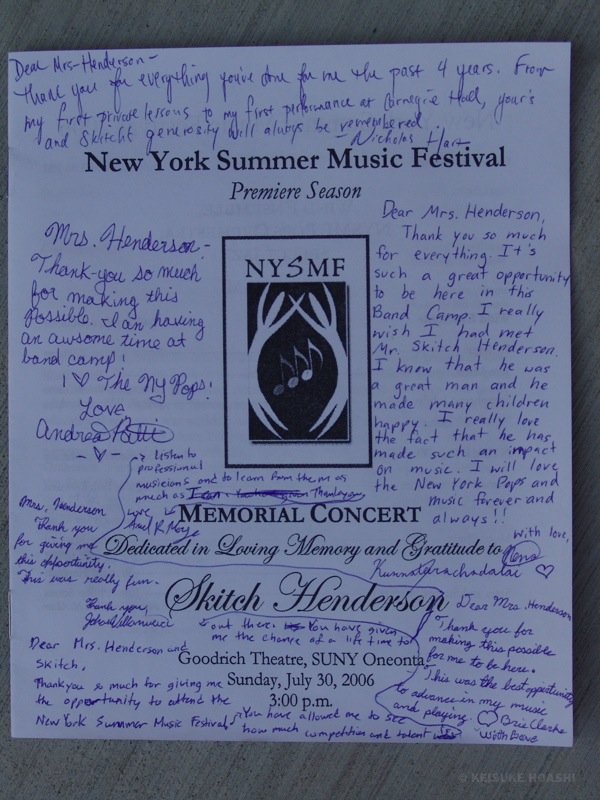 Dear Mrs. Henderson -
Thank you for everything you've done for me the past 4 years. From
my first private lessons to my first performance at Carnegie Hall, your's
and Skitch's generosity will always be remembered
- Nicholas Hart
New York Summer Music Festival
Premiere Season
Mrs. Henderson -
Thank-you so much
for making this
Possible. I an having
an awsome time at
band camp!
I ♡ The Ny Pops!
Love
Andrea
- ♡ -
NYSMF
Dear Mrs. Henderson,
Thank you so much
for everything. It's
such a great opportunity
to be here in this
Band Camp. I really
wish I had met
Mr. Skitch Henderson.
I know that he was
a great man and he
made many children
happy. I really love
the fact that he has
made such an impact
on music. I will love
the New York Pops and
music forever and
always!!
with love,
♡
MEMORIAL CONCERT
Dedicated in Loving Memory and Gratitude to
Skitch Henderson
Goodrich Theatre, SUNY Oneonta
Sunday, July 30, 2006
3:00 p.m.
Mrs. Henderson
Thank you
for giving me
this opportunity.
This was really fun.
Thank you,
Dear Mrs. Henderson and
Skitch,
Thankyou so much for giving me
the opportunity to attend the
New York Summer Music Festival.
You have allowed me to see
how much competition and talent
out there. You have given
me the chance of a life time to
listen to
professional
musicians and to learn from them as
much as I can. Thankyou
Love
Dear Mrs. Henderson
Thank you for
making this possible
for me to be here.
This was the best opportunity
to advance in my music
and playing. ♡ Clarke
With Love
© KEISUKE HOASHI